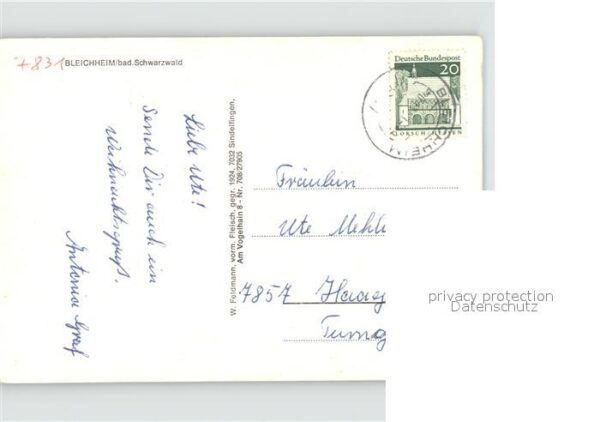 +831
BLEICHHEIM/bad.Schwarzwald
Liebe Ute!
Sende Dir auch ein
Weihnachtsgruß.
Antonia Graf
W. Feldmann, vorm. Fleisch, gegr. 1924, 7032 Sindelfingen,
Am Vogelhain 8 - Nr. 708/27805
Deutsche Bundespost
20
LORSCH/HESSEN
BLEICHHEIM
Fräulein
Ute Mehl
7857 Haag
privacy protection
Datenschutz